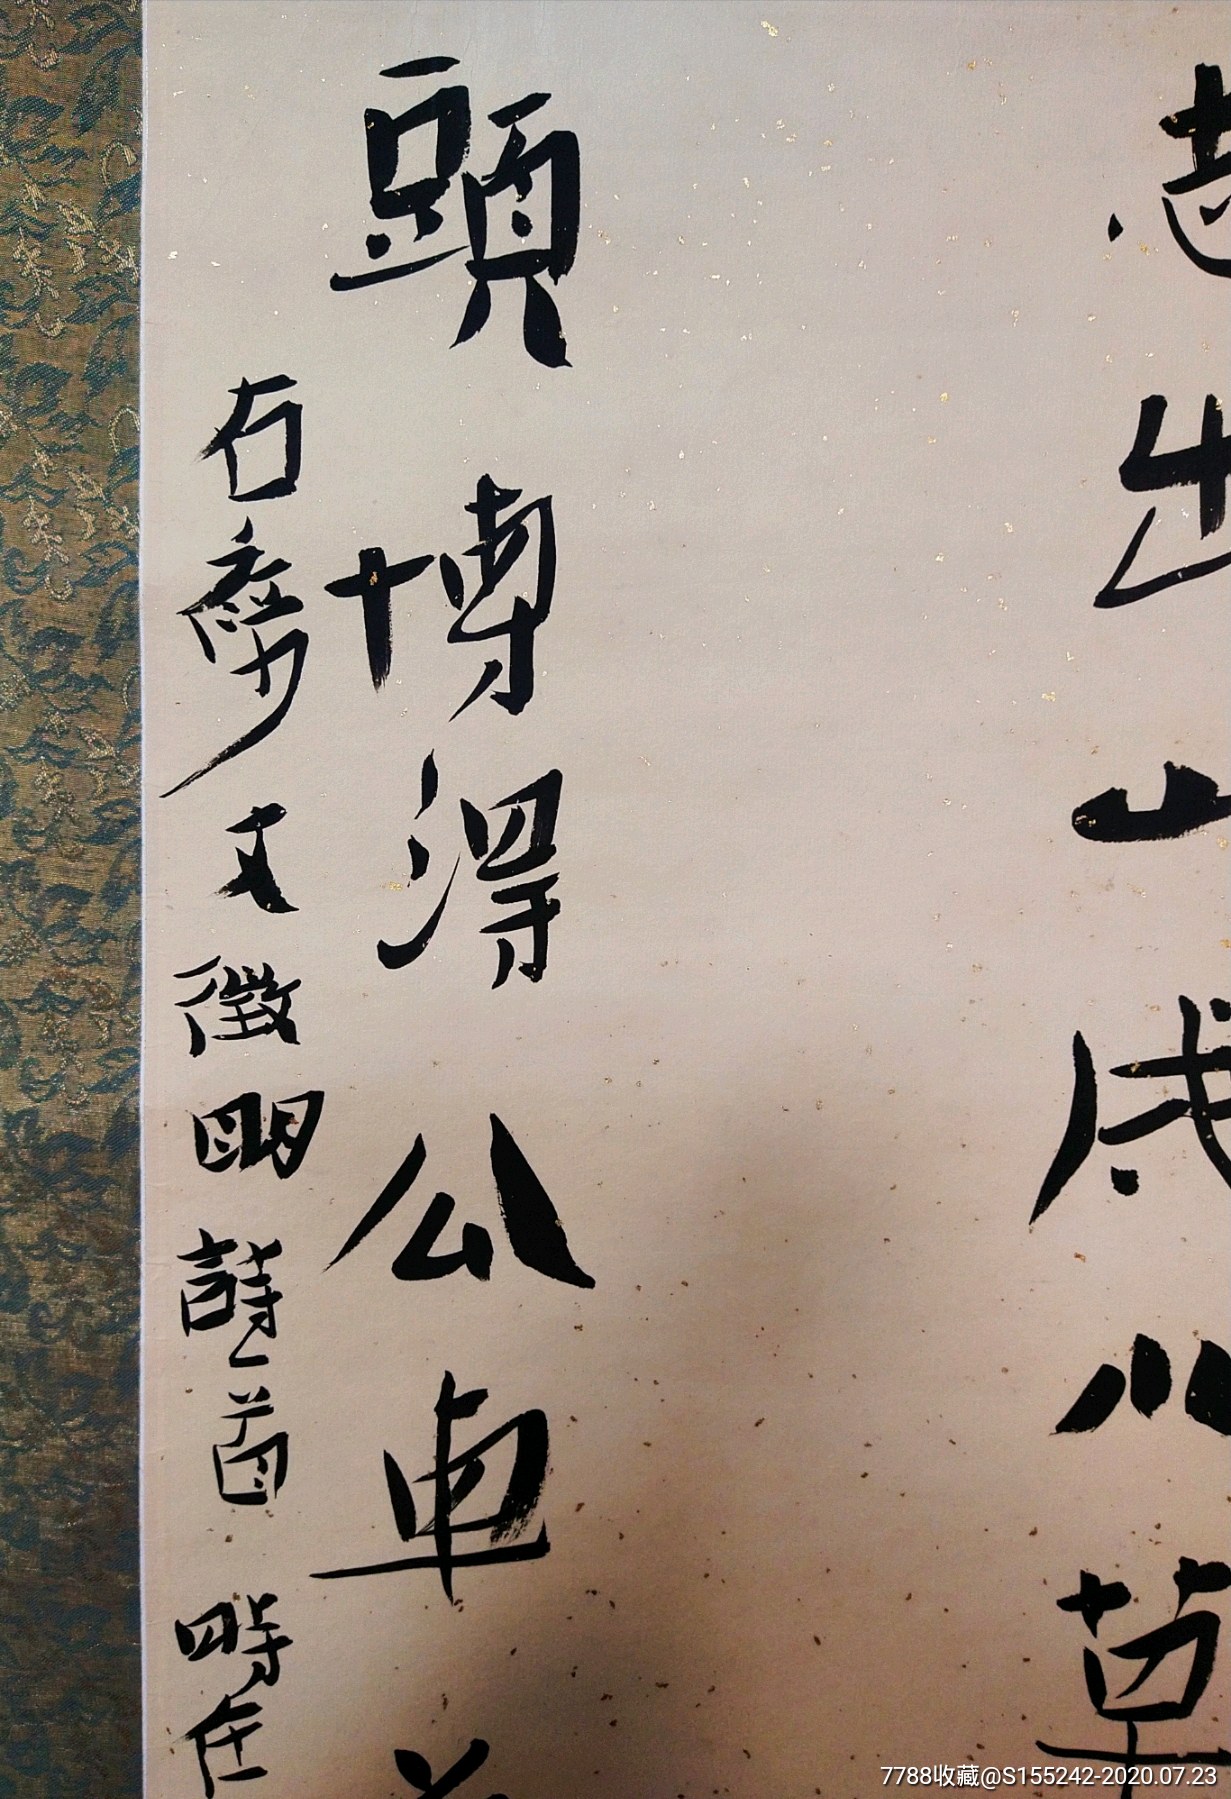 志出山成小草
頭博得公車
右文徵明詩一首 時在
7788收藏@S155242-2020.07.23